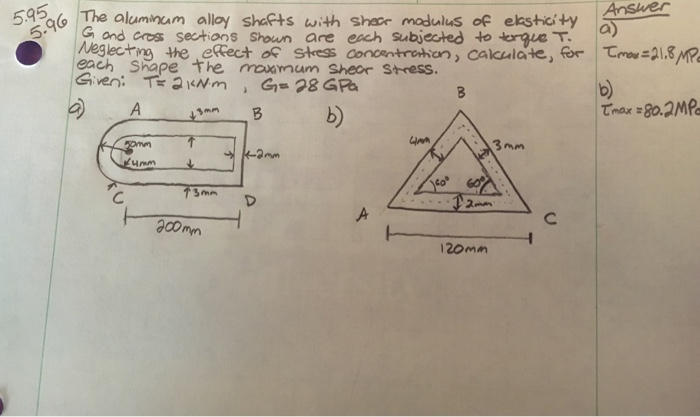 5.95
5.96
The aluminum alloy shafts with shear modulus of elasticity
G and cross sections shown are each subjected to torque T.
Neglecting the effect of stress concentration, calculate, for
each shape the maximum shear stress.
Given: T = 2 kNm , G = 28 GPa
Answer
a)
τmax = 21.8 MPa
b)
τmax = 80.2 MPa
a)
A
3mm
B
50mm
4mm
2mm
C
3mm
D
200mm
b)
B
4mm
3mm
60°
60°
2mm
A
C
120mm